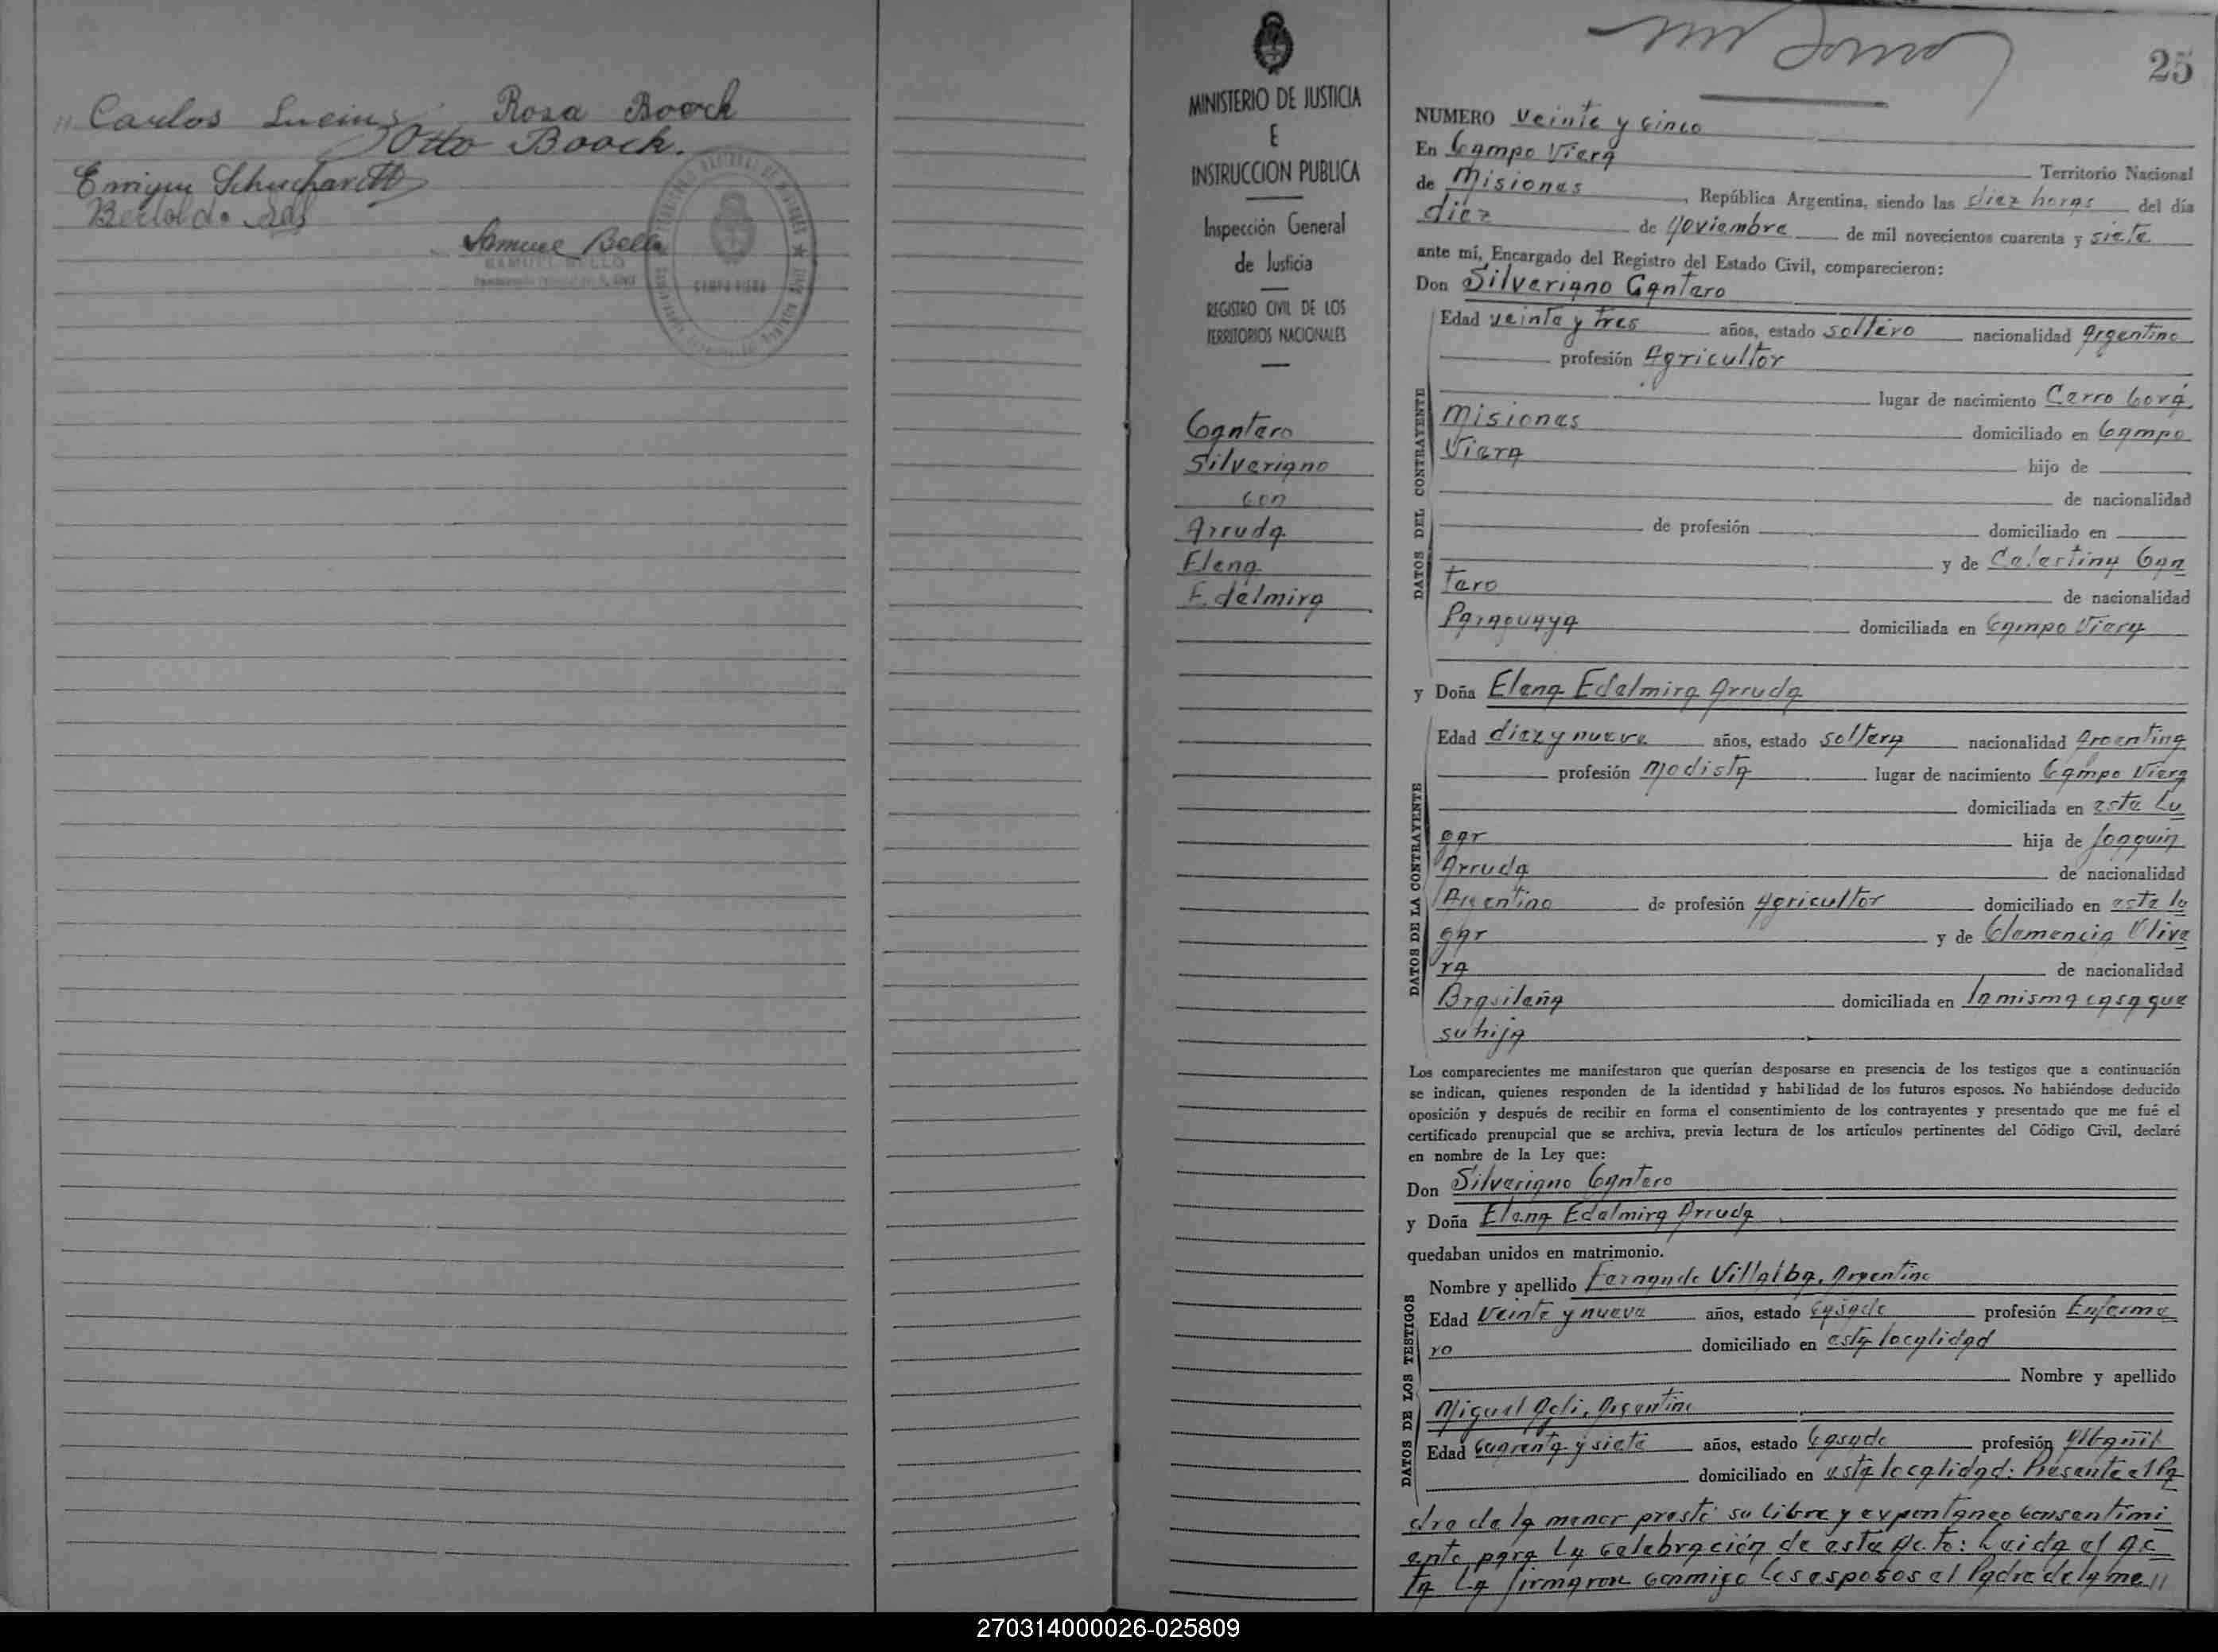 Carlos Lucius Rosa Boock
Otto Boock.
Enrique Schuchardt
Bertoldo
Samuel Bello
SAMUEL BELLO
CAMPO VIERA
MINISTERIO DE JUSTICIA
E
INSTRUCCION PUBLICA
Inspección General
de Justicia
REGISTRO CIVIL DE LOS
TERRITORIOS NACIONALES
Cantero
Silveriano
con
Arruda
Elena
Edelmira
25
NUMERO veinte y cinco
En Campo Viera Territorio Nacional
de Misiones, República Argentina, siendo las diez horas del día
diez de Noviembre de mil novecientos cuarenta y siete
ante mí, Encargado del Registro del Estado Civil, comparecieron:
Don Silveriano Cantero
Edad veinte y tres años, estado soltero nacionalidad Argentino
profesión Agricultor
lugar de nacimiento Cerro Corá
Misiones domiciliado en Campo
Viera hijo de
de nacionalidad
de profesión domiciliado en
y de Celestina Can
tero de nacionalidad
Paraguaya domiciliada en Campo Viera
y Doña Elena Edelmira Arruda
Edad diez y nueve años, estado soltera nacionalidad Argentina
profesión Modista lugar de nacimiento Campo Viera
domiciliada en este Lu
gar hija de Joaquin
Arruda de nacionalidad
Argentino de profesión Agricultor domiciliado en este lu
gar y de Clemencia Olive
ra de nacionalidad
Brasileña domiciliada en la misma casa que
su hija
DATOS DEL CONTRAYENTE
DATOS DE LA CONTRAYENTE
Los comparecientes me manifestaron que querían desposarse en presencia de los testigos que a continuación
se indican, quienes responden de la identidad y habilidad de los futuros esposos. No habiéndose deducido
oposición y después de recibir en forma el consentimiento de los contrayentes y presentado que me fué el
certificado prenupcial que se archiva, previa lectura de los artículos pertinentes del Código Civil, declaré
en nombre de la Ley que:
Don Silveriano Cantero
y Doña Elena Edelmira Arruda
quedaban unidos en matrimonio.
Nombre y apellido Fernando Villalba, Argentino
Edad Veinte y nueve años, estado casado profesión Enferme
ro domiciliado en esta localidad
Nombre y apellido
Miguel Argentino
Edad cuarenta y siete años, estado Casado profesión Albañil
domiciliado en esta localidad: Presente el Pa
DATOS DE LOS TESTIGOS
dre de la menor prestó su libre y expontaneo consentimi
ento para la celebración de este Acto: Leida el Ac
ta la firmaron conmigo los esposos el Padre de la me //
270314000026-025809